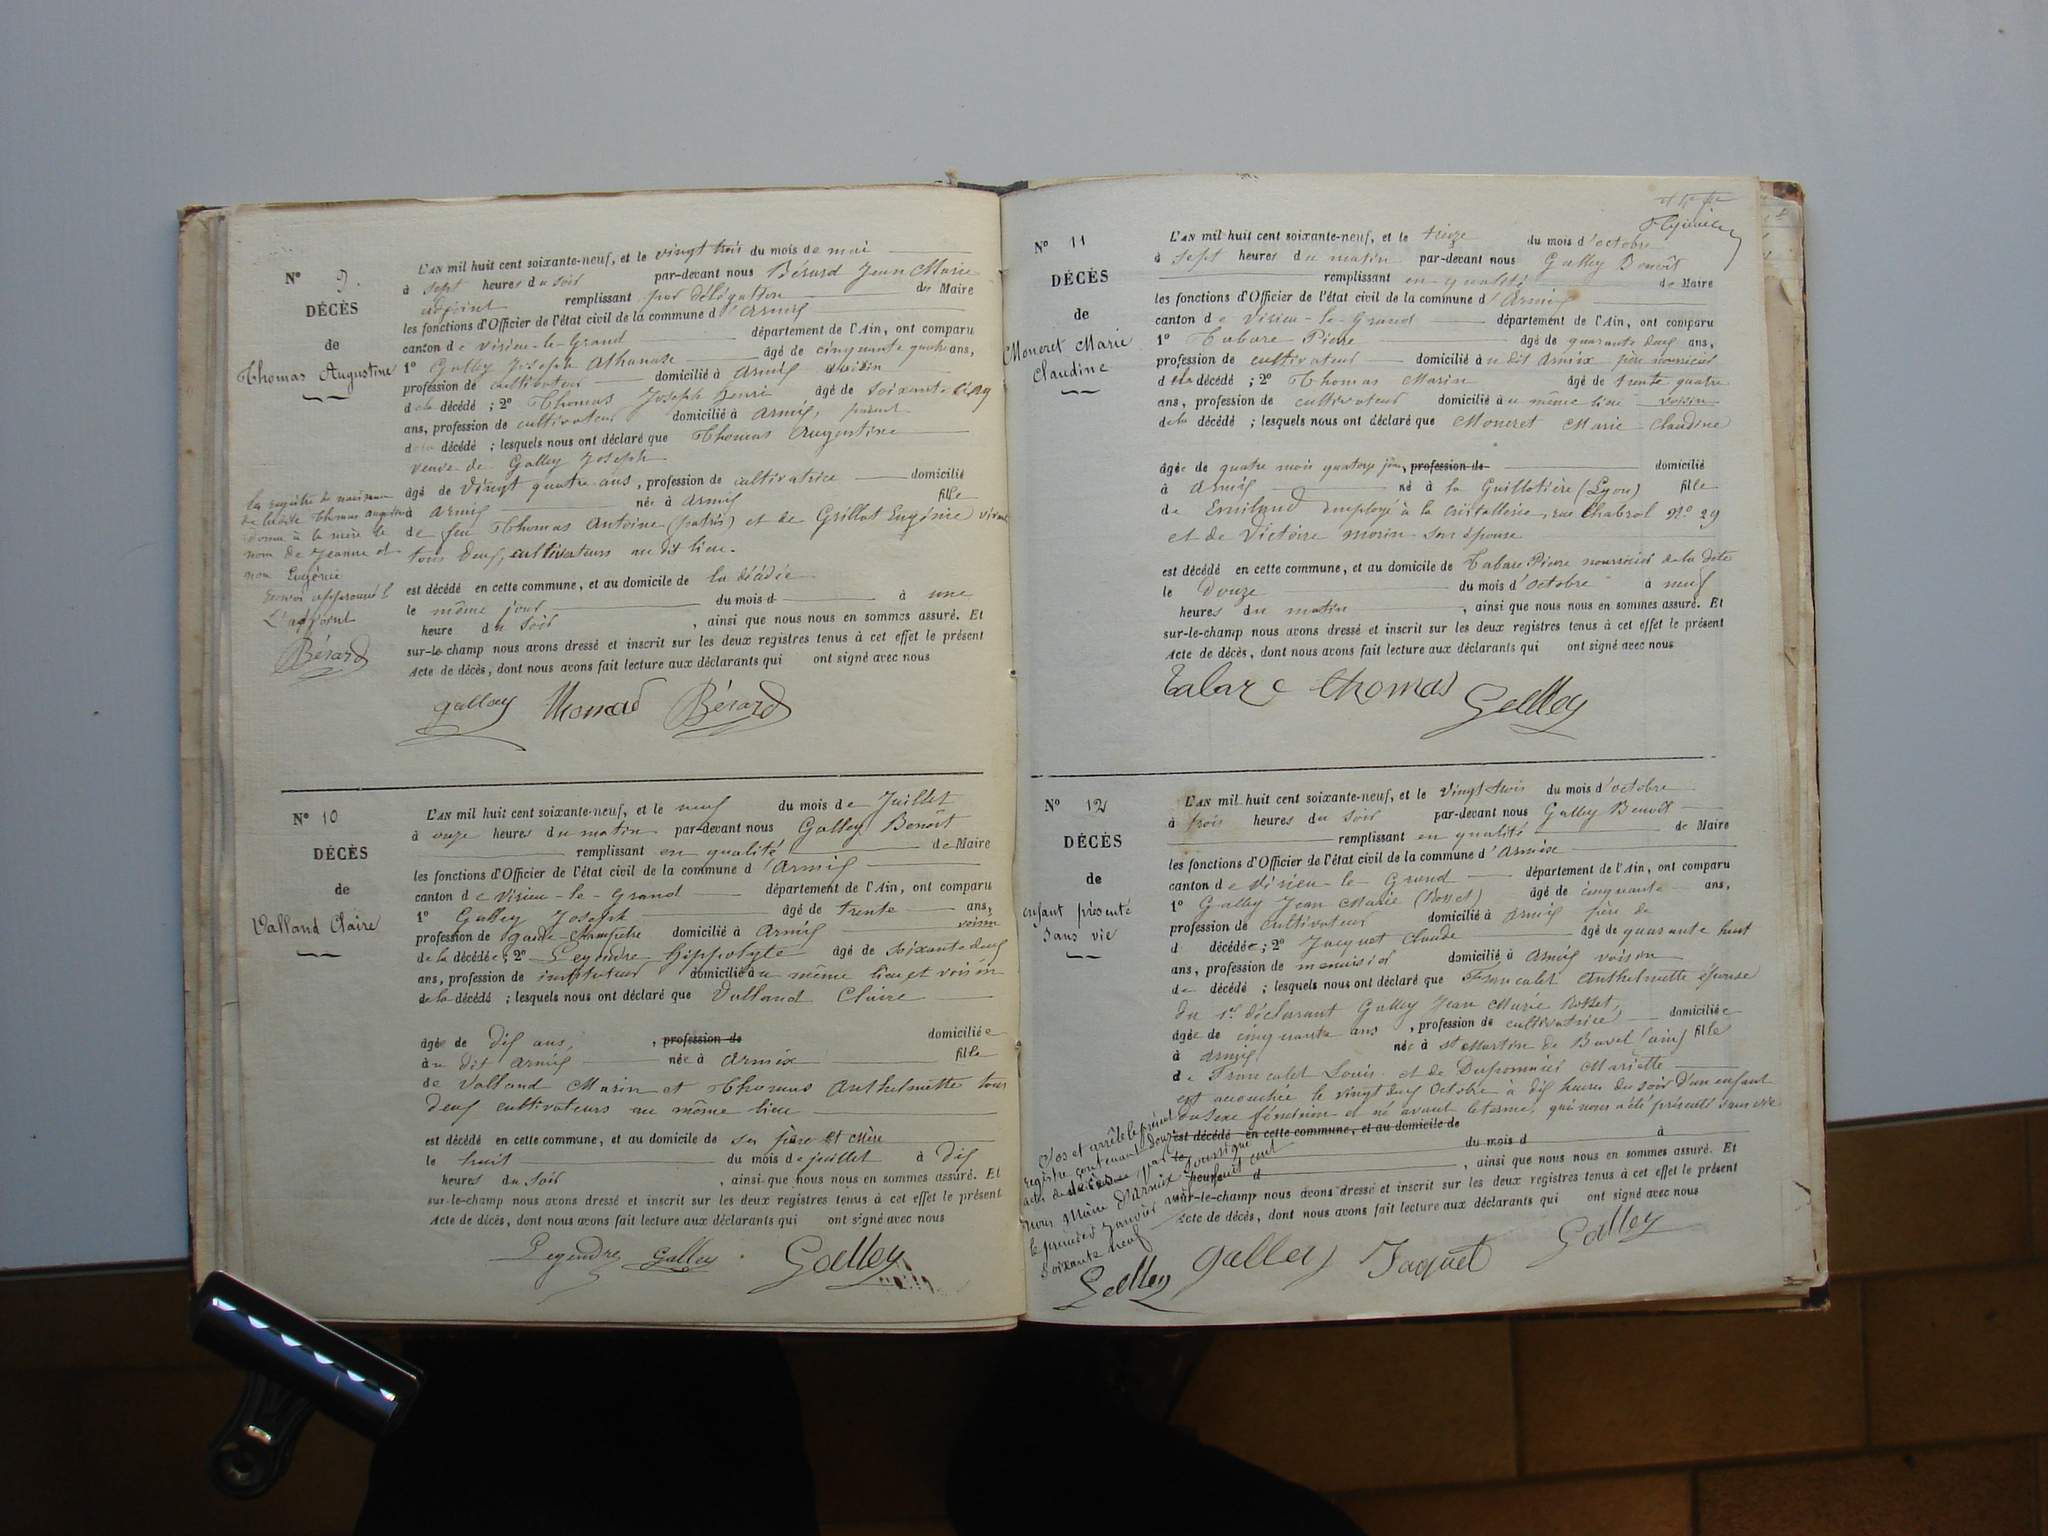 N° 9.
DÉCÈS
de
Thomas Augustine
L'AN mil huit cent soixante-neuf, et le vingt trois du mois de mai
à sept heures du soir par-devant nous Bérard Jean Marie
adjoint remplissant par délégation de Maire
les fonctions d'Officier de l'état civil de la commune d'Armix
canton de Virieu-le-Grand département de l'Ain, ont comparu
1° Galley Joseph Athanase âgé de cinquante quatre ans,
profession de cultivateur domicilié à Armix voisin
de la décédé ; 2° Thomas Joseph Henri âgé de soixante cinq
ans, profession de cultivateur domicilié à Armix, parent
de la décédé ; lesquels nous ont déclaré que Thomas Augustine
veuve de Galley Joseph
âgé de vingt quatre ans, profession de cultivatrice domicilié
à Armix née à Armix fille
de feu Thomas Antoine (patris) et de Grillot Eugénie vivant
tous deux, cultivateurs au dit lieu.
est décédé en cette commune, et au domicile de la décédée
le même jour du mois d à une
heure du soir, ainsi que nous nous en sommes assuré. Et
sur-le-champ nous avons dressé et inscrit sur les deux registres tenus à cet effet le présent
Acte de décès, dont nous avons fait lecture aux déclarants qui ont signé avec nous
galley Thomas Bérard
Le registre de naissance
de ladite Thomas Augustine
donne à la mère le
nom de Jeanne et
non Eugénie
Renvoi approuvé
L'adjoint
Bérard
N° 10
DÉCÈS
de
Valland Claire
L'AN mil huit cent soixante-neuf, et le neuf du mois de Juillet
à onze heures du matin par-devant nous Galley Benoît
remplissant en qualité de Maire
les fonctions d'Officier de l'état civil de la commune d'Armix
canton de Virieu-le-Grand département de l'Ain, ont comparu
1° Galley Joseph âgé de trente ans,
profession de garde-champêtre domicilié à Armix voisin
de la décédée ; 2° Legendre hippolyte âgé de soixante deux
ans, profession de instituteur domicilié au même lieu et voisin
de la décédé ; lesquels nous ont déclaré que Valland Claire
âgée de dix ans, profession de domiciliée
au dit Armix née à Armix fille
de Valland Marin et Thomas Anthelmette tous
deux cultivateurs au même lieu
est décédé en cette commune, et au domicile de ses père et mère
le huit du mois de juillet à dix
heures du soir, ainsi que nous nous en sommes assuré. Et
sur-le-champ nous avons dressé et inscrit sur les deux registres tenus à cet effet le présent
Acte de décès, dont nous avons fait lecture aux déclarants qui ont signé avec nous
Legendre Galley Galley
N° 11
DÉCÈS
de
Moneret Marie
Claudine
L'AN mil huit cent soixante-neuf, et le treize du mois d'octobre
à sept heures du matin par-devant nous Galley Benoît
remplissant en qualité de Maire
les fonctions d'Officier de l'état civil de la commune d'Armix
canton de Virieu-le-Grand département de l'Ain, ont comparu
1° Tabare Pierre âgé de quarante deux ans,
profession de cultivateur domicilié au dit Armix père nourricier
de la décédé ; 2° Thomas Marin âgé de trente quatre
ans, profession de cultivateur domicilié au même lieu voisin
de la décédé ; lesquels nous ont déclaré que Moneret Marie Claudine
âgée de quatre mois quatorze jours, profession de domicilié
à Armix né à la Guillotière (Lyon) fille
de Emiland employé à la cristallerie, rue Chabrol N° 29
et de Victoire morin son épouse
est décédé en cette commune, et au domicile de Tabare Pierre nourricier de la dite
le Douze du mois d'Octobre à neuf
heures du matin, ainsi que nous nous en sommes assuré. Et
sur-le-champ nous avons dressé et inscrit sur les deux registres tenus à cet effet le présent
Acte de décès, dont nous avons fait lecture aux déclarants qui ont signé avec nous
Tabare thomas Galley
N° 12
DÉCÈS
de
enfant présenté
sans vie
L'AN mil huit cent soixante-neuf, et le vingt trois du mois d'octobre
à trois heures du soir par-devant nous Galley Benoît
remplissant en qualité de Maire
les fonctions d'Officier de l'état civil de la commune d'Armix
canton de Virieu-le-Grand département de l'Ain, ont comparu
1° Galley Jean Marie (Rosset) âgé de cinquante ans,
profession de cultivateur domicilié à Armix père de
d décédée ; 2° Jacquet Claude âgé de quarante huit
ans, profession de menuisier domicilié à Armix voisin
de décédé ; lesquels nous ont déclaré que Francalet Anthelmette épouse
du 1er déclarant Galley Jean Marie Rosset,
âgée de cinquante ans, profession de cultivatrice domiciliée
à Armix née à St Martin de Bavel (ain) fille
de Francalet Louis et de Mariette
est accouchée le vingt deux Octobre à dix heures du soir d'un enfant
du sexe féminin et né avant le terme, qui nous a été présenté sans vie
est décédé en cette commune, et au domicile de
le du mois d à
heure d, ainsi que nous nous en sommes assuré. Et
sur-le-champ nous avons dressé et inscrit sur les deux registres tenus à cet effet le présent
Acte de décès, dont nous avons fait lecture aux déclarants qui ont signé avec nous
galley Jaquet Galley
Clos et arrêté le présent
registre contenant douze
actes de décès par le soussigné
nous Maire d'Armix
le premier Janvier mil huit cent
soixante neuf
Galley